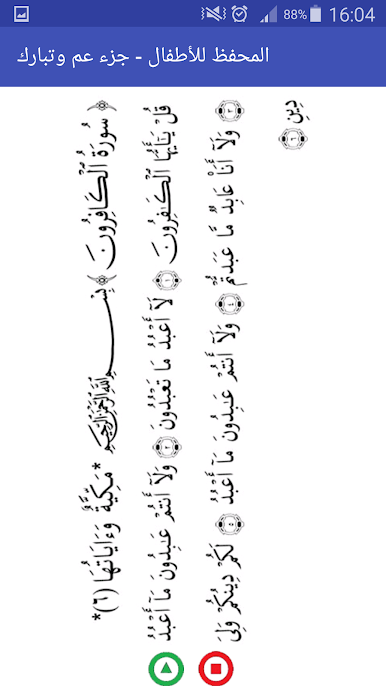 88% 16:04
المحفظ للأطفال - جزء عم وتبارك
﴿ سُورَةُ الْكَافِرُونَ ﴾ بِسْمِ اللَّهِ الرَّحْمَٰنِ الرَّحِيمِ *مَكِّيَّةٌ وَءَايَاتُهَا (٦)*
قُلْ يَٰٓأَيُّهَا الْكَٰفِرُونَ ۝١ لَآ أَعْبُدُ مَا تَعْبُدُونَ ۝٢ وَلَآ أَنتُمْ عَٰبِدُونَ مَآ أَعْبُدُ
۝٣ وَلَآ أَنَا۠ عَابِدٌ مَّا عَبَدتُّمْ ۝٤ وَلَآ أَنتُمْ عَٰبِدُونَ مَآ أَعْبُدُ ۝٥ لَكُمْ دِينُكُمْ وَلِيَ
دِينِ ۝٦